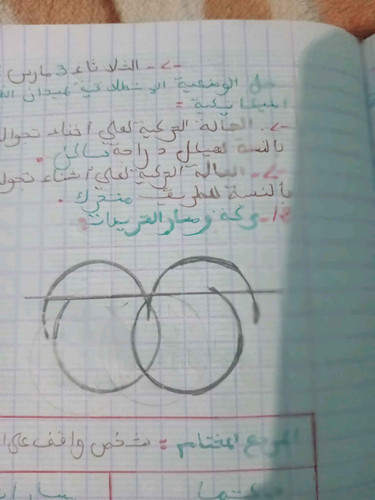 ->- الثلاثاء 3 مارس
حل الوضعية الانطلاقية لميدان
الميكانيكية =
->- الحالة الحركية لعلي أثناء تجوال
بالنسبة لهيكل دراجة ساكن .
->- الحالة الحركية لعلي أثناء تجوال
بالنسبة للطريق متحرك .
حركة ومسار
المرجع المختار = شخص واقف على